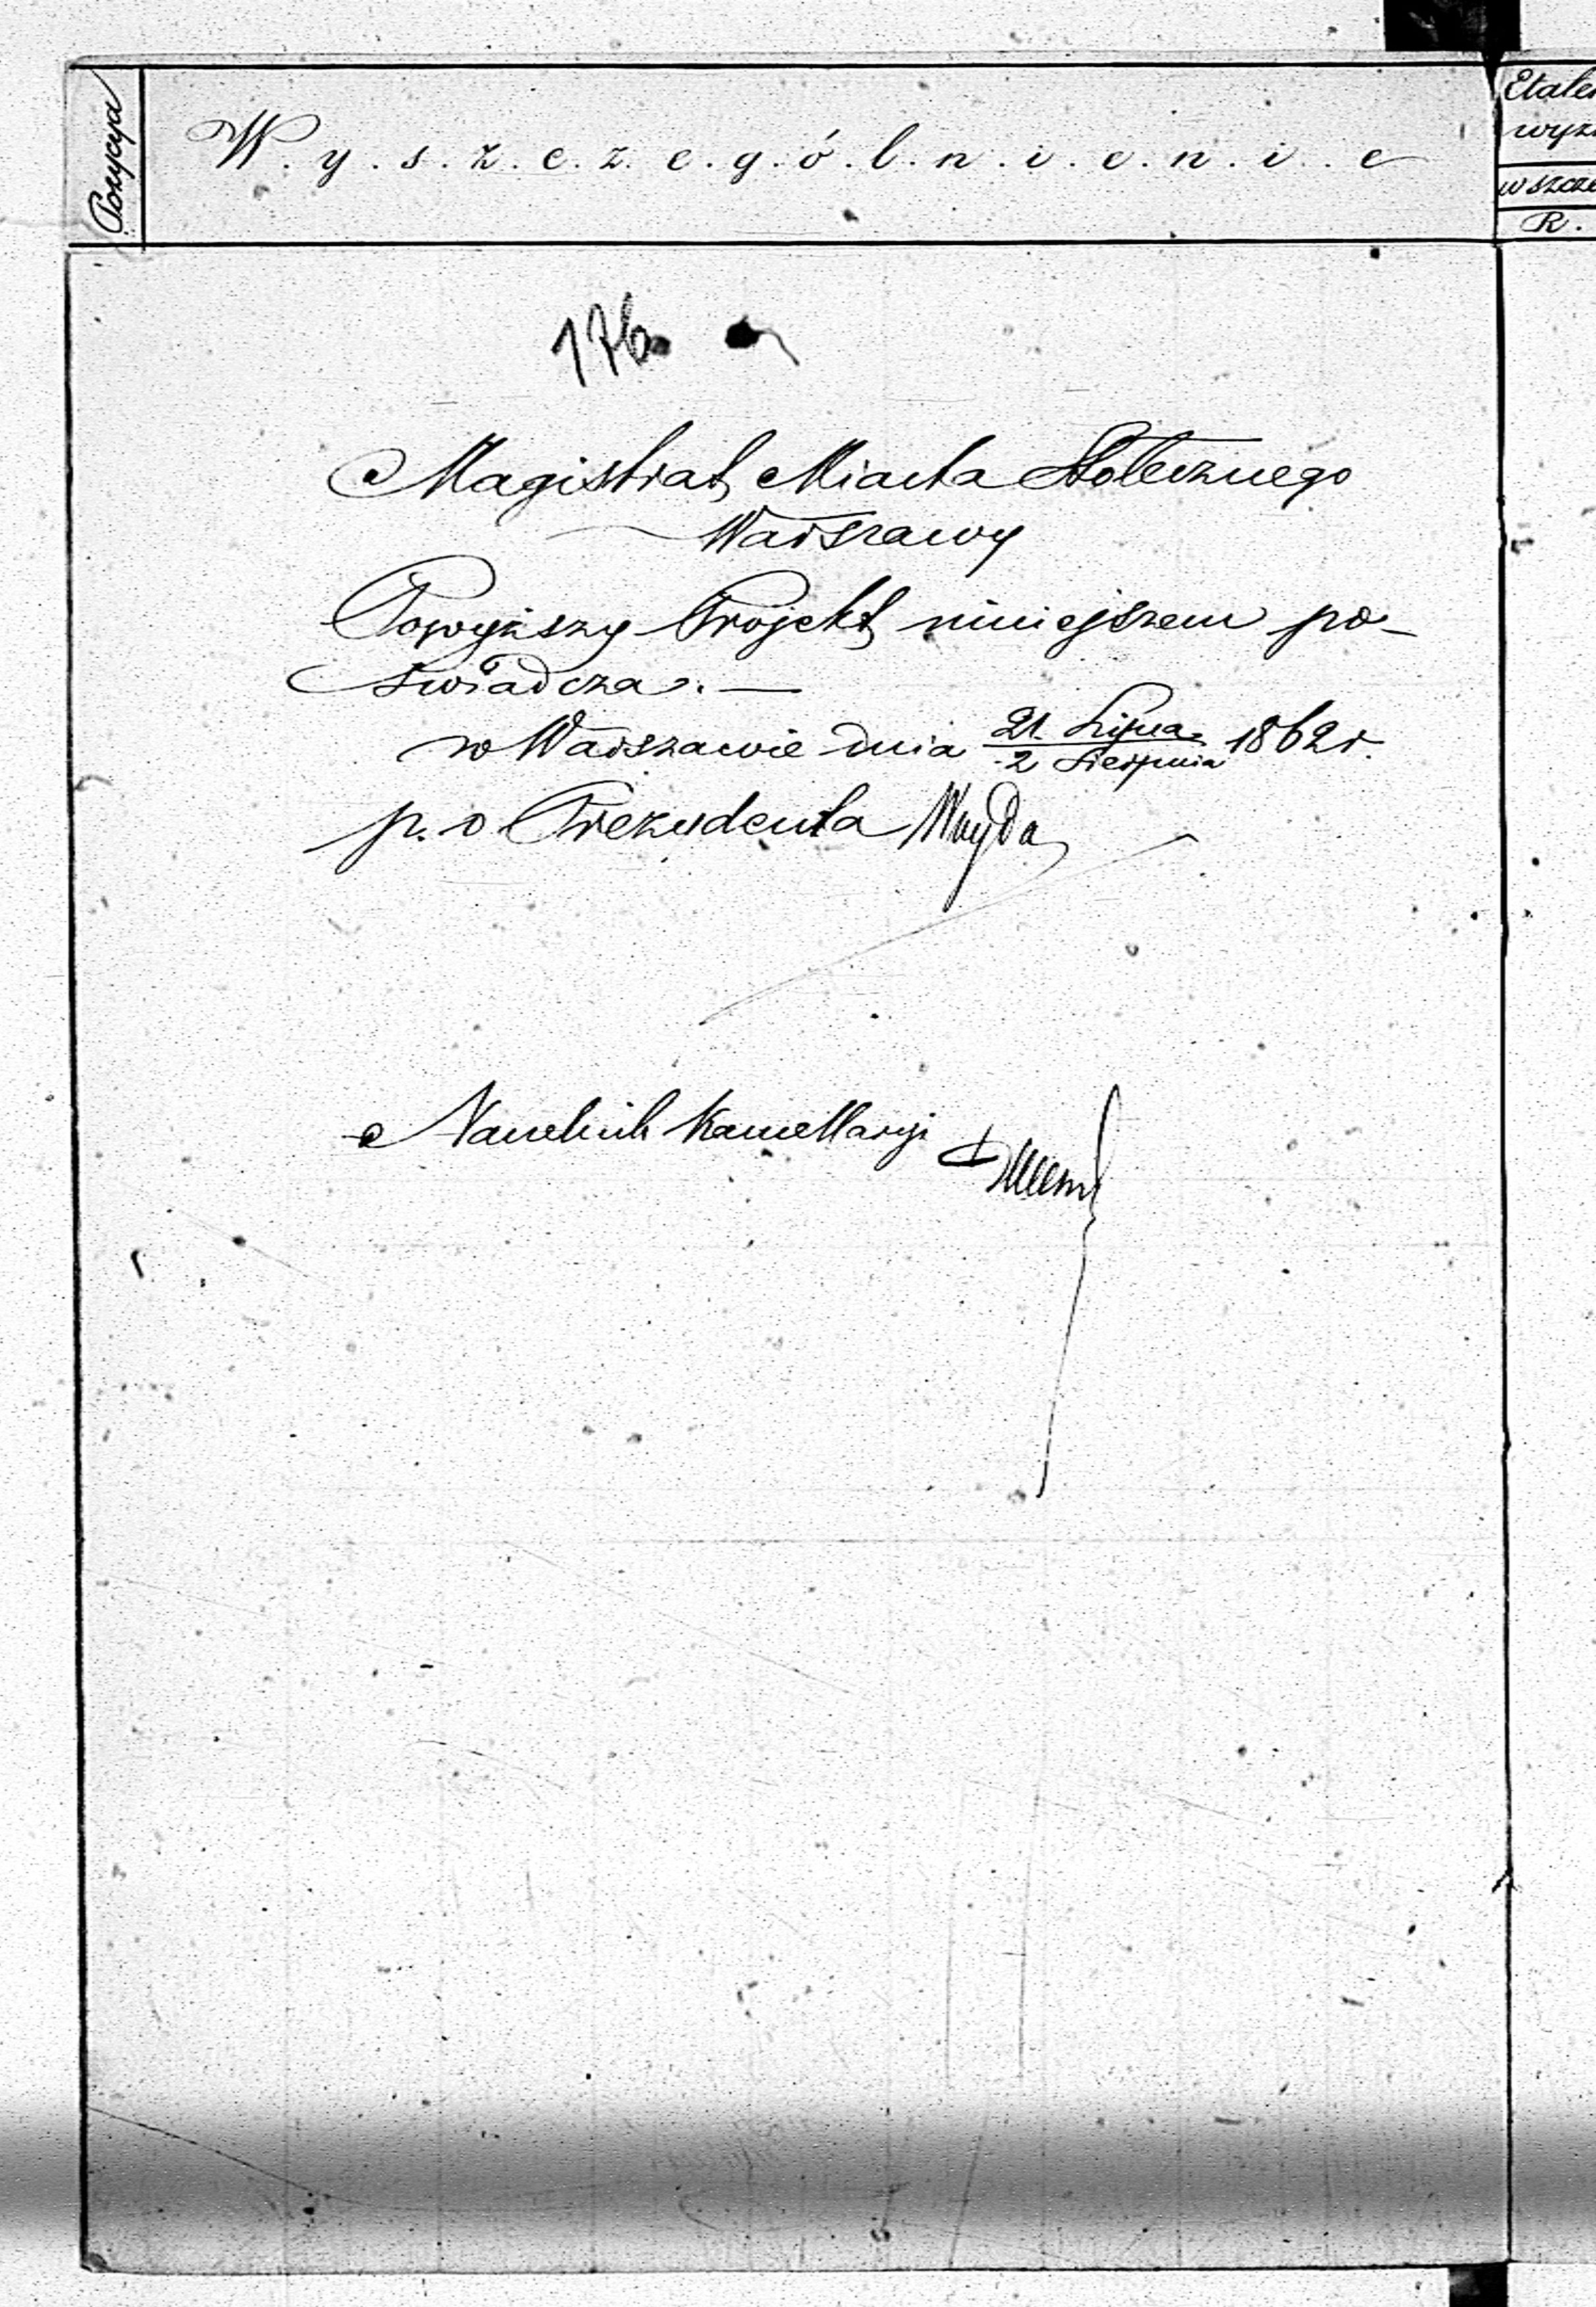 Pozycya
W.y.s.z.c.z.e.g.ó.l.n.i.e.n.i.e
Etate
wyz
w szcze
R.
176
Magistrat Miasta Stołecznego
Warszawy
Powyższy Projekt niniejszem po-
świadcza. —
w Warszawie dnia 21 Lipca / 2 Sierpnia 1862 r.
p. o Prezydenta Woyda
Naczelnik Kancellaryi